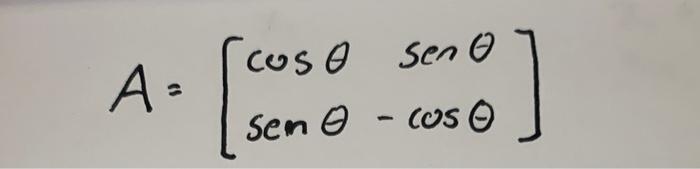 A = [cos θ sen θ
sen θ - cos θ]